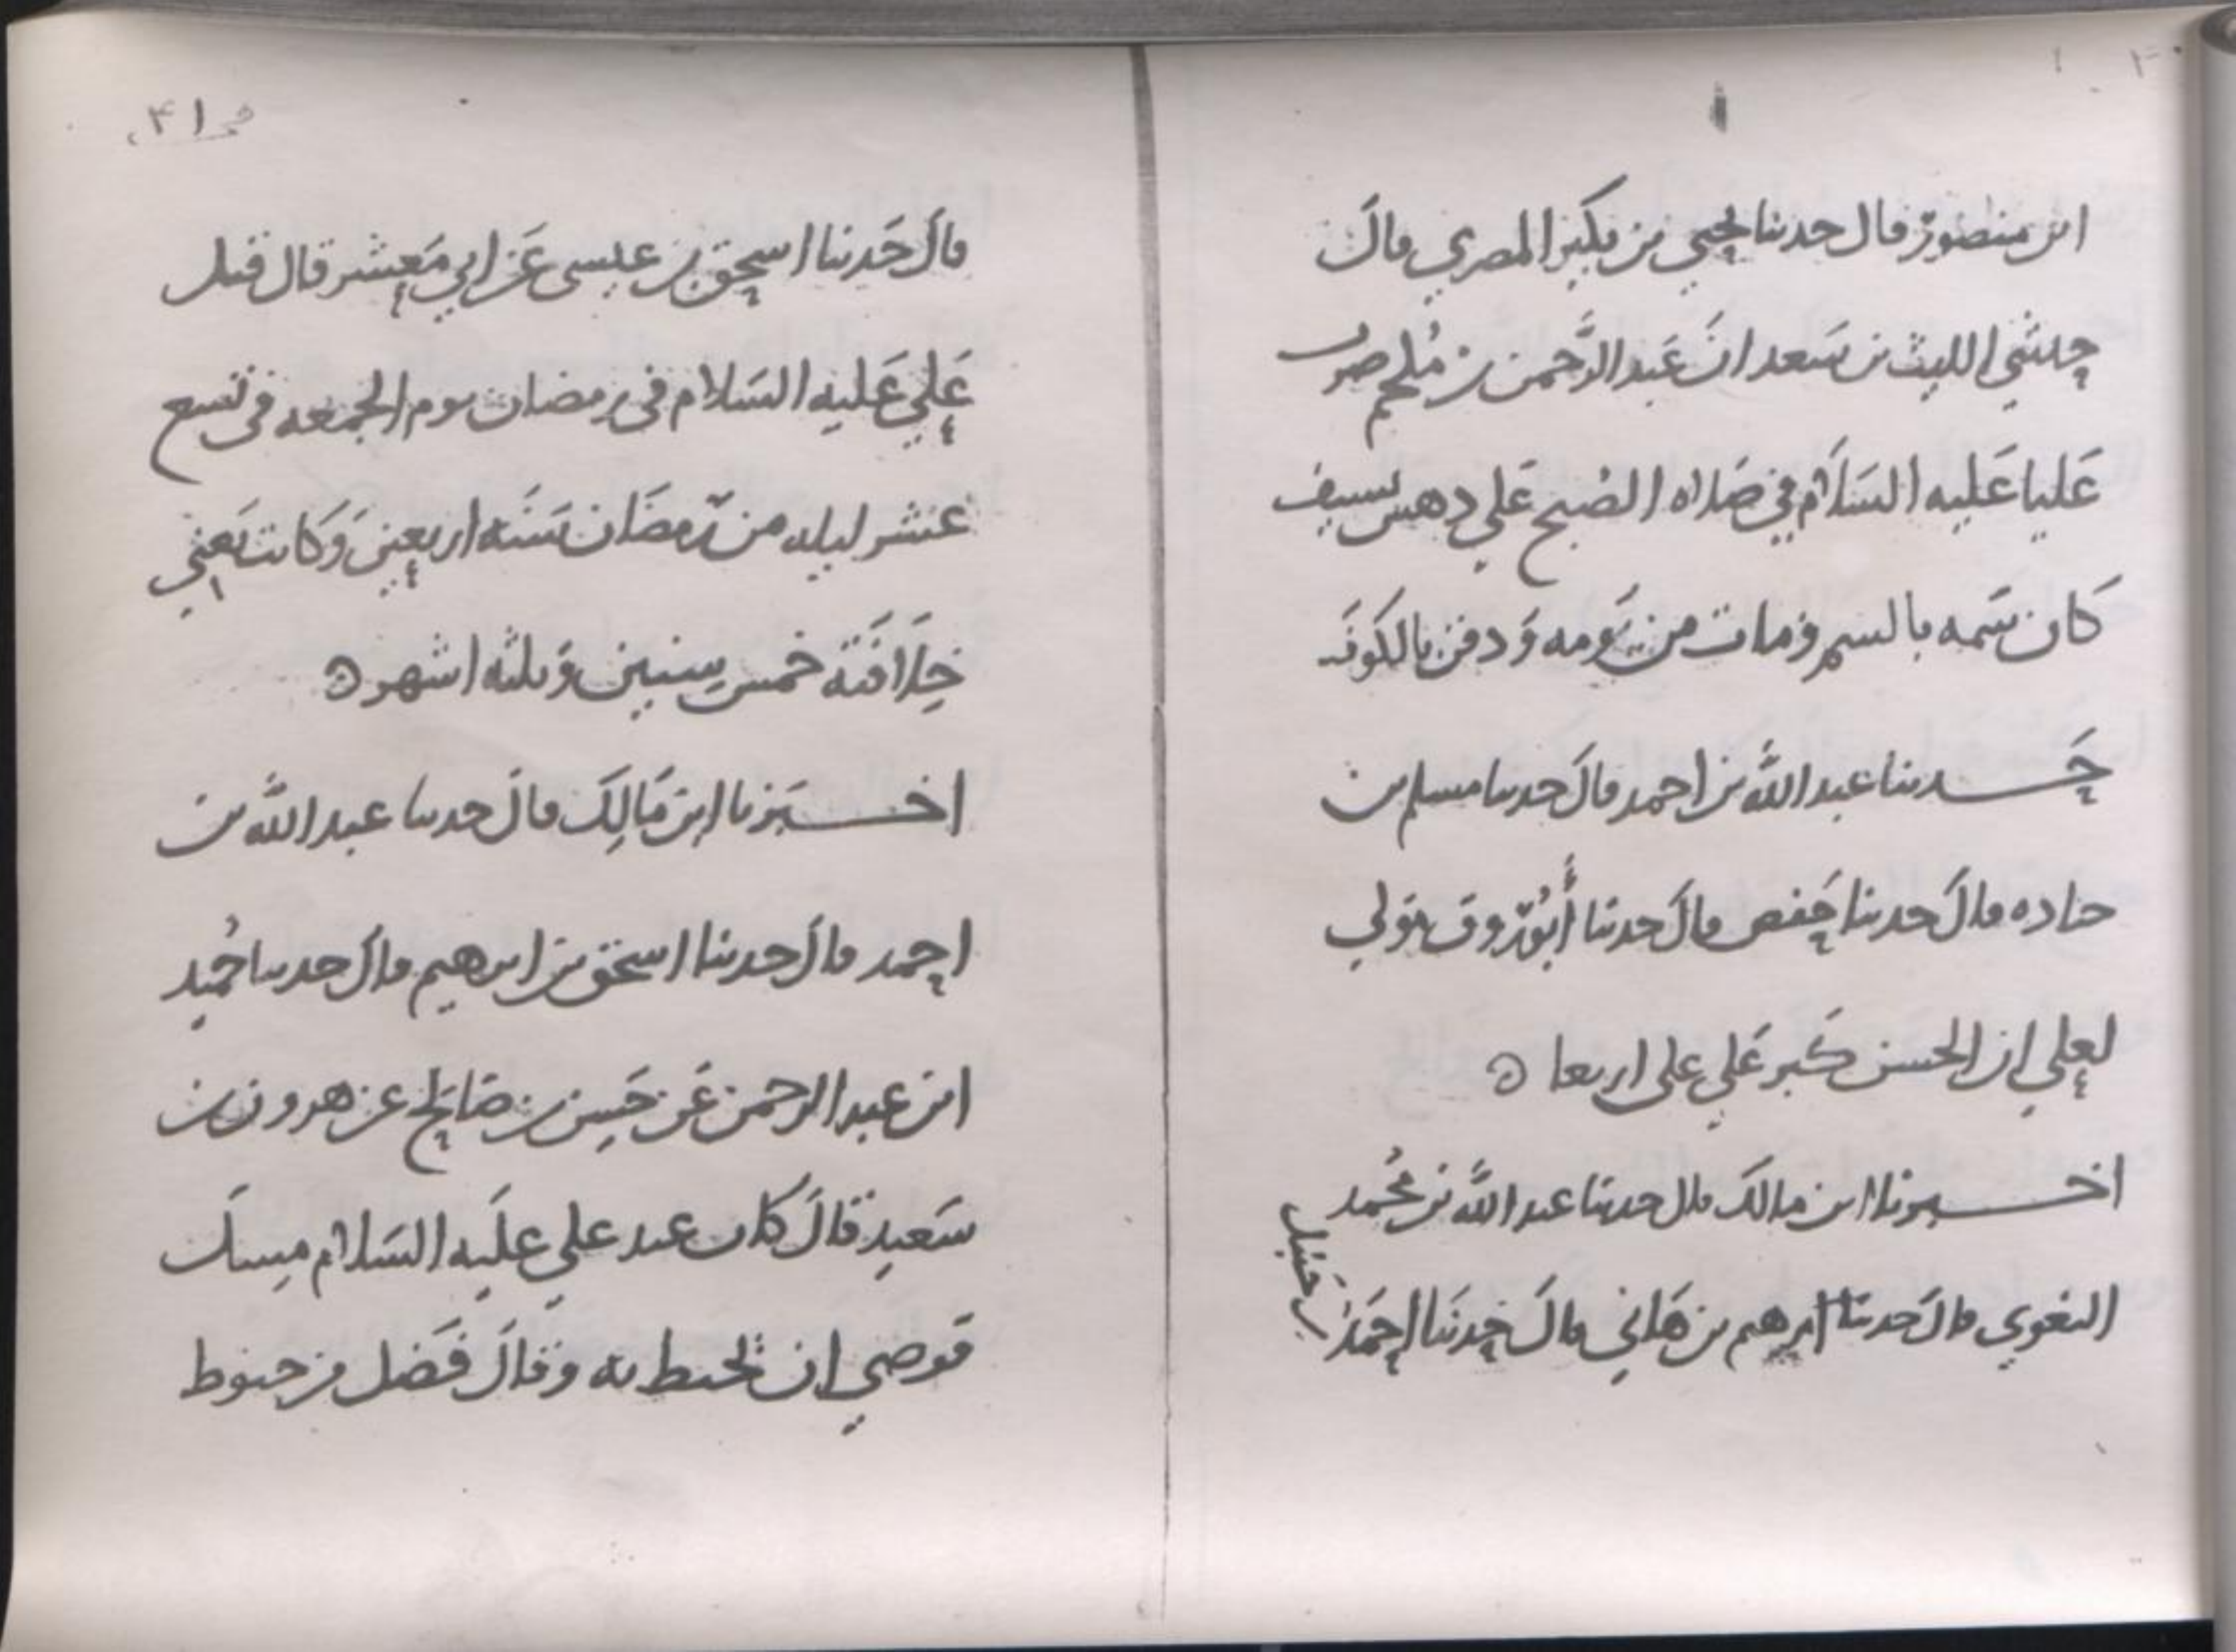 ابن منصور قال حدثنا يحيى بن بكير المصري قال
حدثني الليث بن سعد ان عبد الرحمن بن ملجم ضرب
عليا عليه السلام في صلاه الصبح على دهس بسيف
كان سمه بالسم ومات من يومه ودفن بالكوفه
حدثنا عبد الله بن احمد قال حدثنا مسلم بن
جناده قال حدثنا حفص قال حدثنا أبو روق مولي
لعلي ان الحسن كبر على علي اربعا ه
اخبرنا ابن مالك قال حدثنا عبد الله بن محمد
البغوي قال حدثنا ابرهيم بن هاني قال حدثنا احمد بن حنبل
قال حدثنا اسحق بن عيسى عن ابي معشر قال قتل
علي عليه السلام في رمضان يوم الجمعه في تسع
عشر ليله من رمضان سنه اربعين وكانت يعني
خلافته خمس سنين وثلثه اشهر ه
اخبرنا ابن مالك قال حدثنا عبد الله بن
احمد قال حدثنا اسحق بن ابرهيم قال حدثنا حميد
ابن عبد الرحمن عن حسن بن صالح عن هرون بن
سعيد قال كان عند علي عليه السلام مسك
فوصي ان يحنط به وقال فضل من حنوط